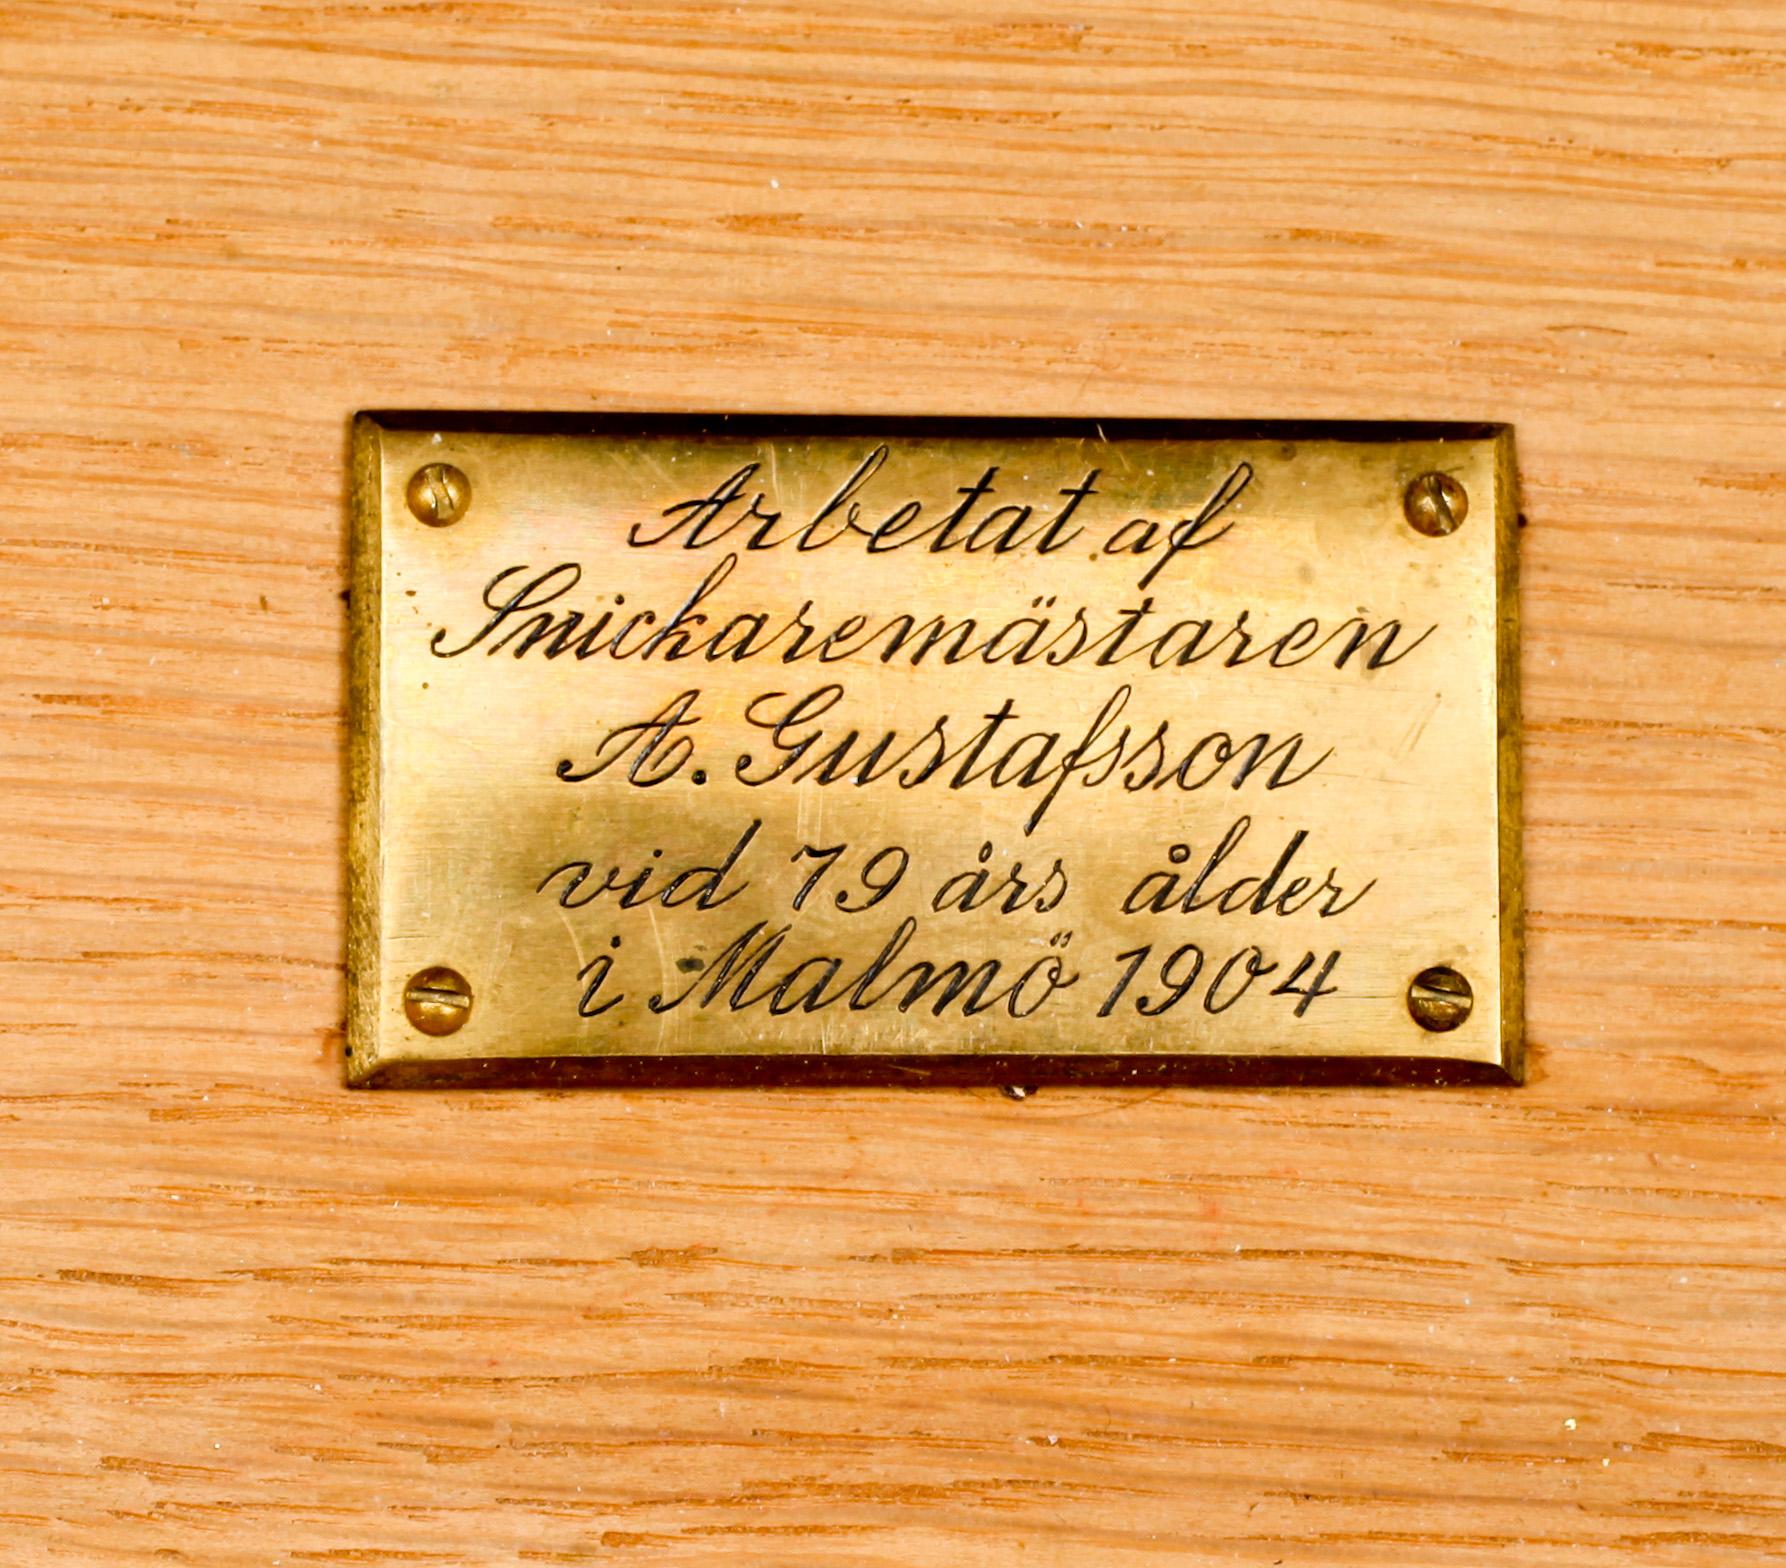 Arbetat af
Snickaremästaren
A. Gustafsson
vid 79 års ålder
i Malmö 1904